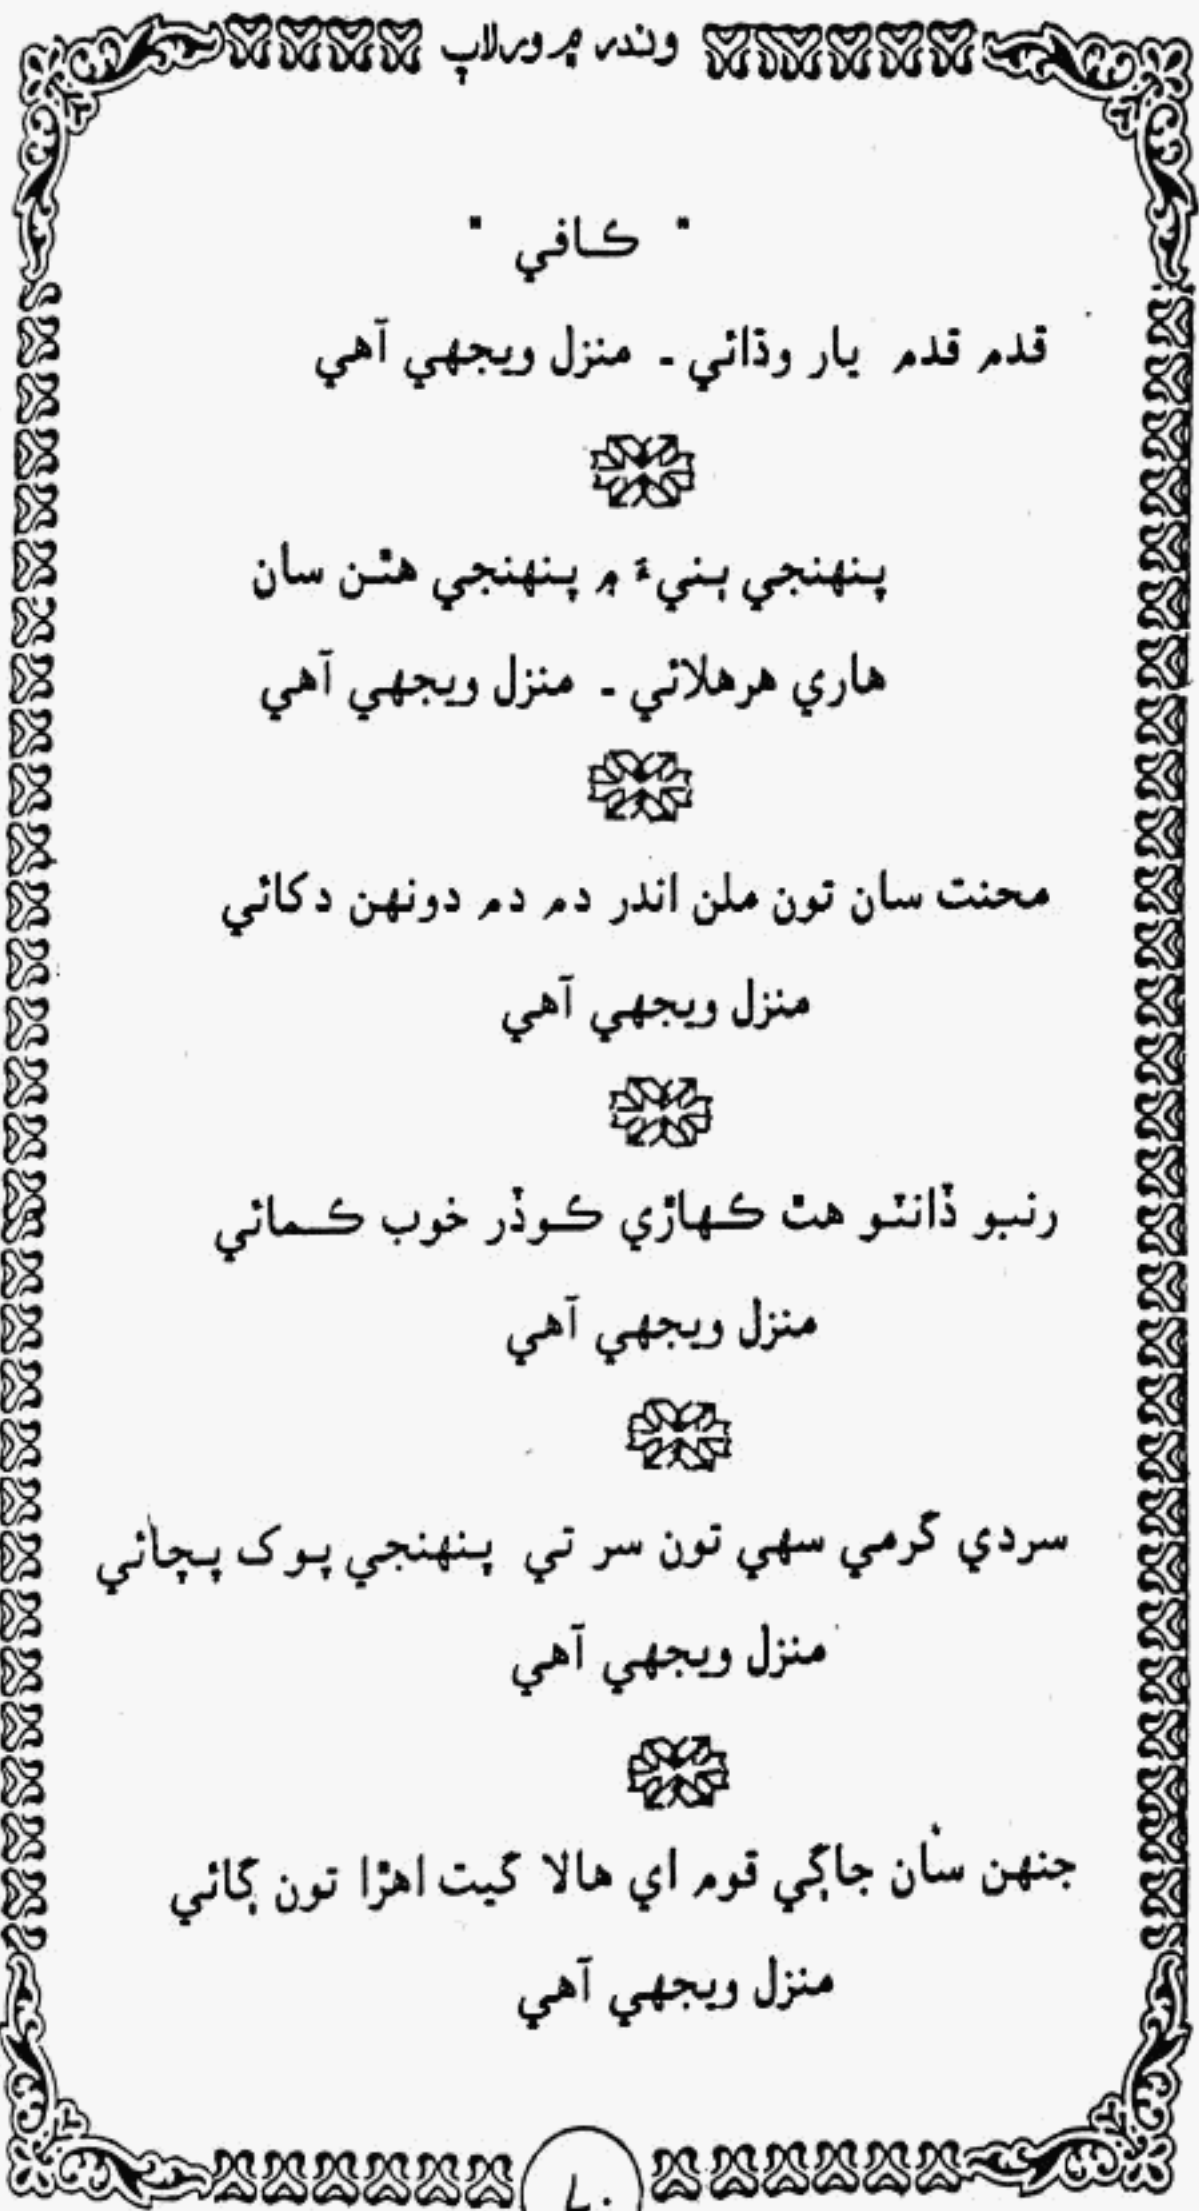 وندر ۾ ورلاپ
" ڪافي "
قدم قدم يار وڌائي ـ منزل ويجهي آهي
پنهنجي ٻنيءَ ۾ پنهنجي هٿن سان
هاري هرهلائي ـ منزل ويجهي آهي
محنت سان تون ملن اندر دم دم دونهن دکائي
منزل ويجهي آهي
رنبو ڏاٽو هٿ ڪهاڙي ڪوڏر خوب ڪمائي
منزل ويجهي آهي
سردي گرمي سهي تون سر تي پنهنجي پوک پچائي
منزل ويجهي آهي
جنهن سان جاڳي قوم اي هالا گيت اهڙا تون ڳائي
منزل ويجهي آهي